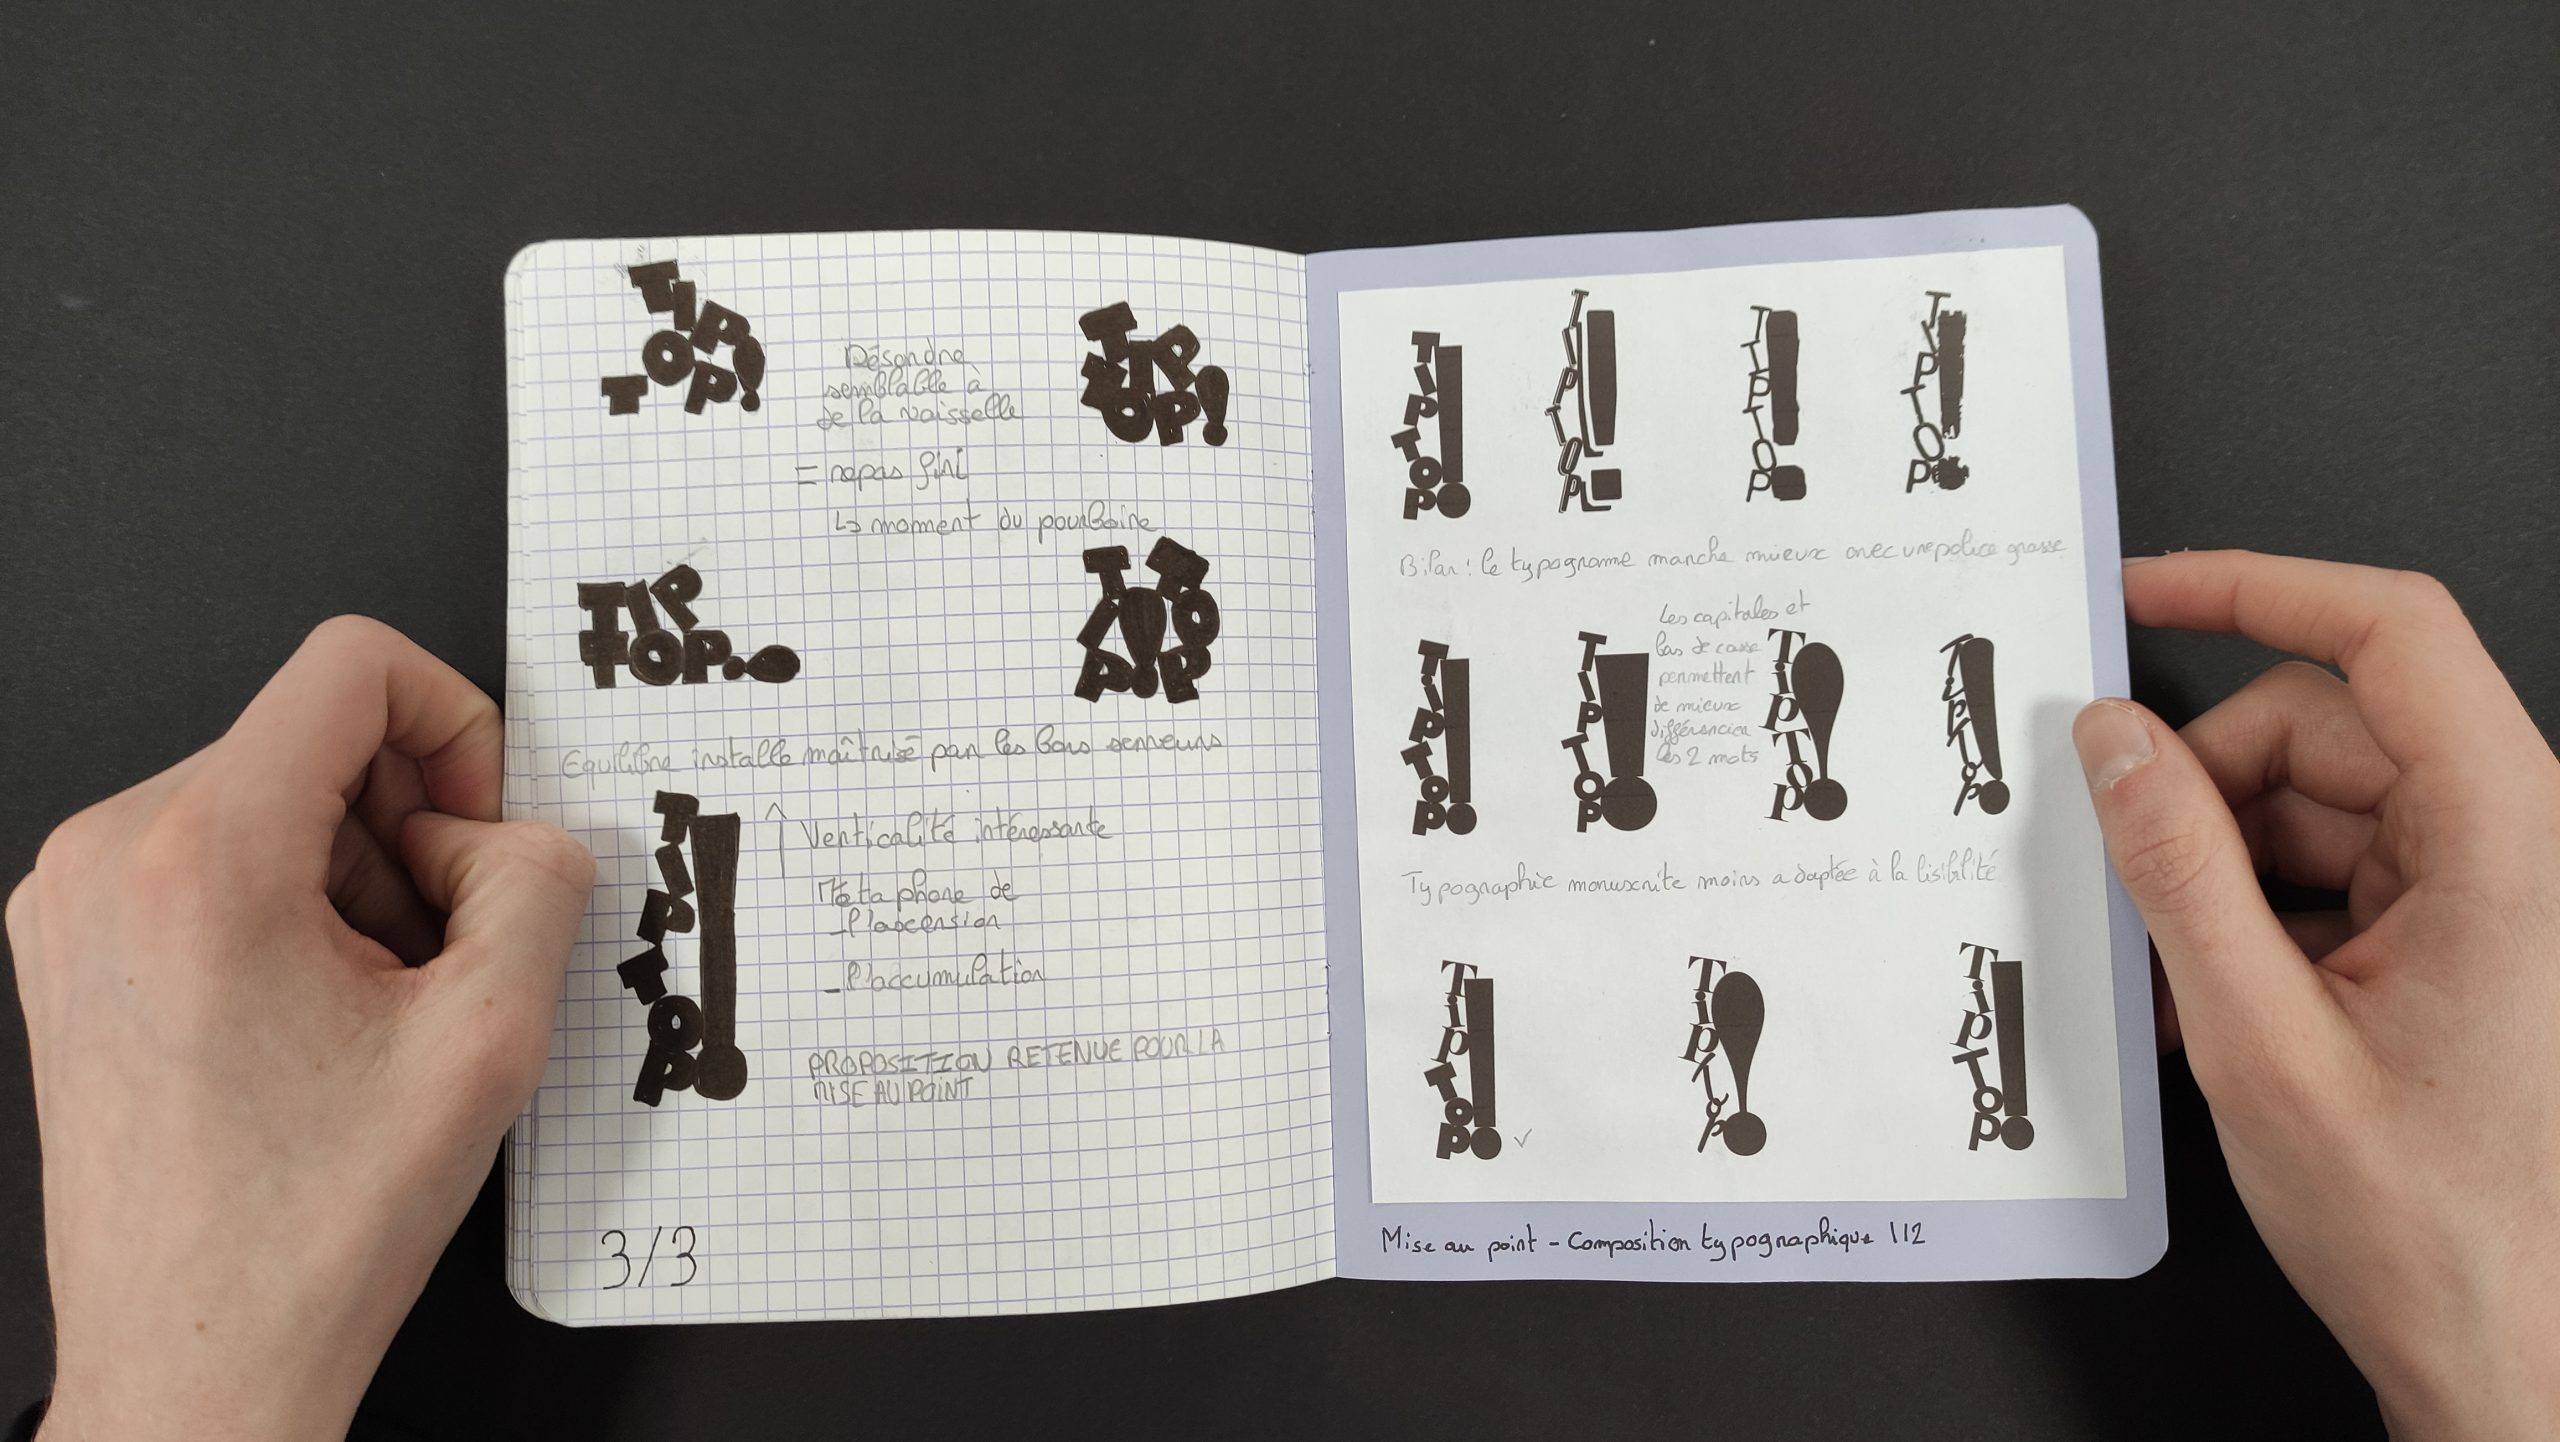 TIP
TOP!
Désordre
semblable à
de la vaisselle
= repas fini
↳ moment du pourboire
TIP
TOP!
TIP
TOP.
TIP
TOP!
Equilibre installe maîtrisé par les bons serveurs
TIPTOP!
Verticalité intéressante
Métaphore de
- l'ascension
- l'accumulation
PROPOSITION RETENUE POUR LA
MISE AU POINT
3/3
TIPTOP!
TIPTOP!
TIPTOP!
TIPTOP!
Bilan : le typogramme marche mieux avec une police grasse
TiPTOP!
TIPTOP!
Les capitales et
bas de casse
permettent
de mieux
différencier
les 2 mots
TipTop!
TipTop!
Typographie manuscrite moins adaptée à la lisibilité
TipTOP!
TipTop!
TipTOP!
Mise au point - Composition typographique 1/2